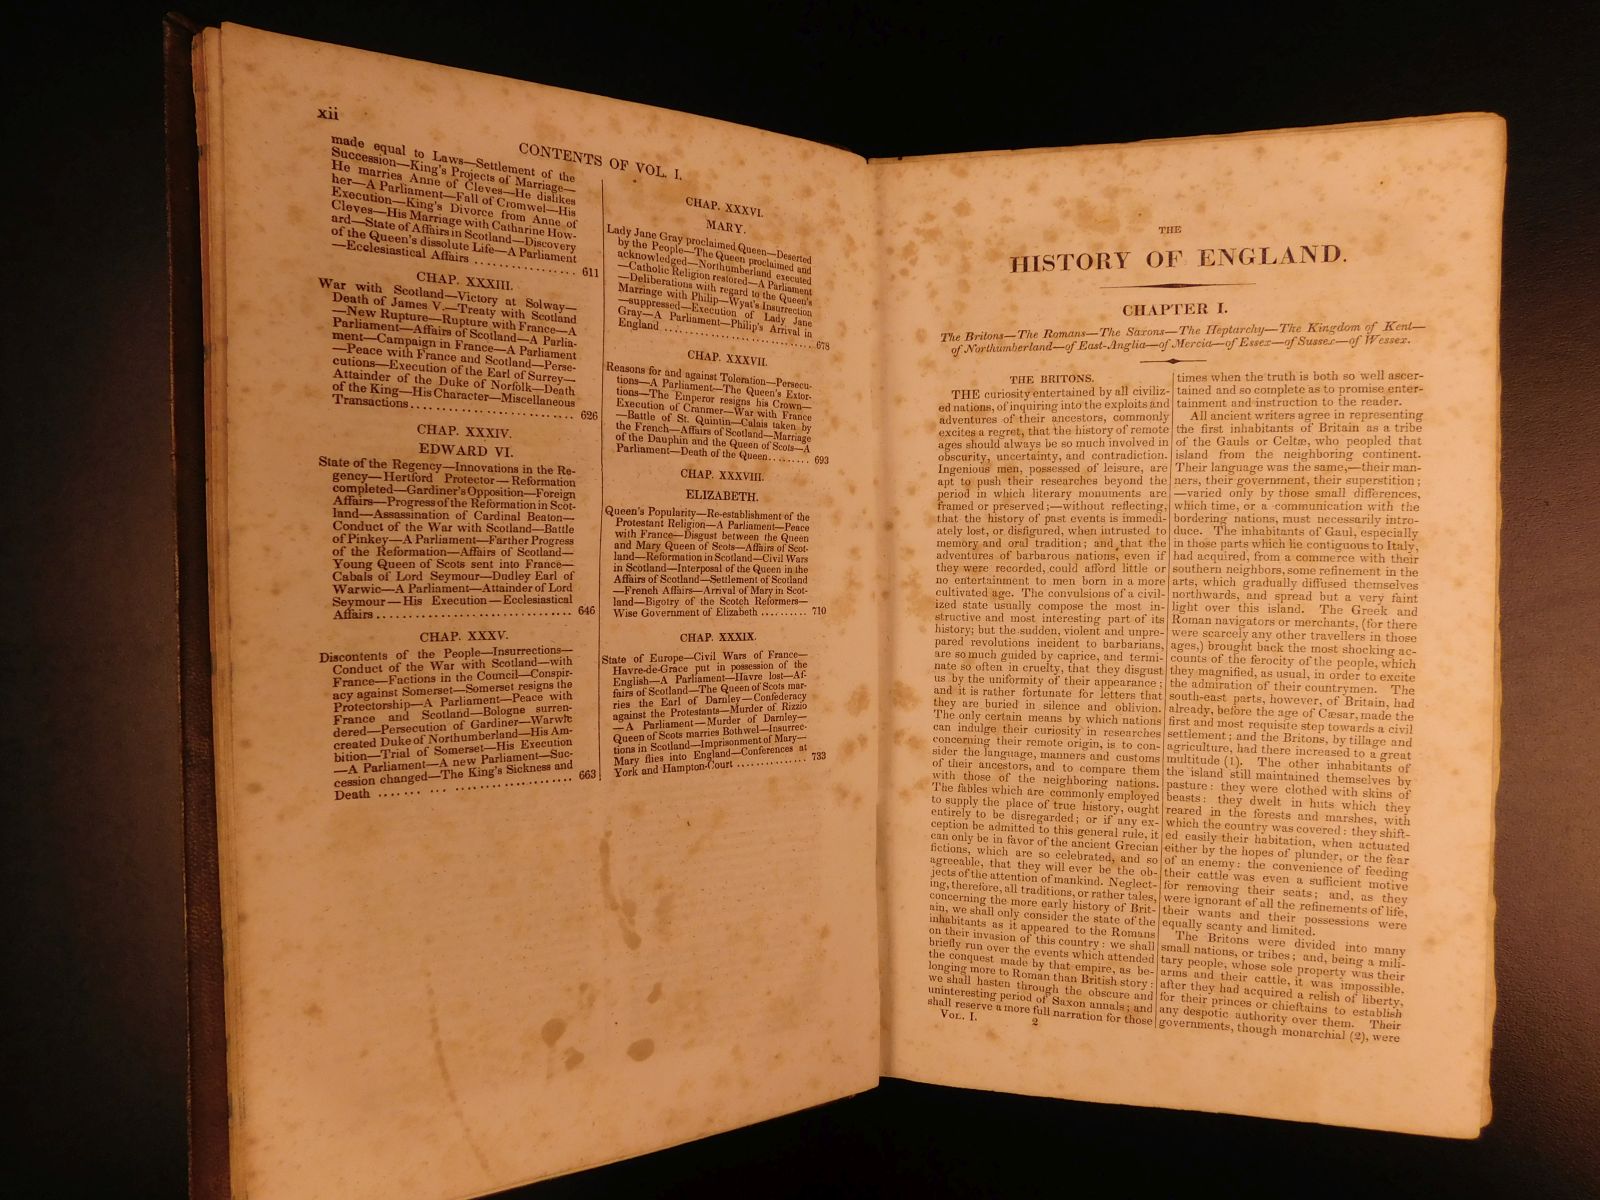 xii
CONTENTS OF VOL. I.
made equal to Laws—Settlement of the
Succession—King's Projects of Marriage—
He marries Anne of Cleves—He dislikes
her—A Parliament—Fall of Cromwel—His
Execution—King's Divorce from Anne of
Cleves—His Marriage with Catharine How-
ard—State of Affairs in Scotland—Discovery
of the Queen's dissolute Life—A Parliament
—Ecclesiastical Affairs ................ 611
CHAP. XXXIII.
War with Scotland—Victory at Solway—
Death of James V.—Treaty with Scotland
—New Rupture—Rupture with France—A
Parliament—Affairs of Scotland—A Parlia-
ment—Campaign in France—A Parliament
—Peace with France and Scotland—Perse-
cutions—Execution of the Earl of Surrey—
Attainder of the Duke of Norfolk—Death
of the King—His Character—Miscellaneous
Transactions ........................ 626
CHAP. XXXIV.
EDWARD VI.
State of the Regency—Innovations in the Re-
gency—Hertford Protector—Reformation
completed—Gardiner's Opposition—Foreign
Affairs—Progress of the Reformation in Scot-
land—Assassination of Cardinal Beaton—
Conduct of the War with Scotland—Battle
of Pinkey—A Parliament—Farther Progress
of the Reformation—Affairs of Scotland—
Young Queen of Scots sent into France—
Cabals of Lord Seymour—Dudley Earl of
Warwic—A Parliament—Attainder of Lord
Seymour—His Execution—Ecclesiastical
Affairs .............................. 646
CHAP. XXXV.
Discontents of the People—Insurrections—
Conduct of the War with Scotland—with
France—Factions in the Council—Conspir-
acy against Somerset—Somerset resigns the
Protectorship—A Parliament—Peace with
France and Scotland—Bologne surren-
dered—Persecution of Gardiner—Warwic
created Duke of Northumberland—His Am-
bition—Trial of Somerset—His Execution
—A Parliament—A new Parliament—Suc-
cession changed—The King's Sickness and
Death .............................. 663
CHAP. XXXVI.
MARY.
Lady Jane Gray proclaimed Queen—Deserted
by the People—The Queen proclaimed and
acknowledged—Northumberland executed
—Catholic Religion restored—A Parliament
—Deliberations with regard to the Queen's
Marriage with Philip—Wyat's Insurrection
—suppressed—Execution of Lady Jane
Gray—A Parliament—Philip's Arrival in
England ........................ 678
CHAP. XXXVII.
Reasons for and against Toleration—Persecu-
tions—A Parliament—The Queen's Extor-
tions—The Emperor resigns his Crown—
Execution of Cranmer—War with France
—Battle of St. Quintin—Calais taken by
the French—Affairs of Scotland—Marriage
of the Dauphin and the Queen of Scots—A
Parliament—Death of the Queen ......... 693
CHAP. XXXVIII.
ELIZABETH.
Queen's Popularity—Re-establishment of the
Protestant Religion—A Parliament—Peace
with France—Disgust between the Queen
and Mary Queen of Scots—Affairs of Scot-
land—Reformation in Scotland—Civil Wars
in Scotland—Interposal of the Queen in the
Affairs of Scotland—Settlement of Scotland
—French Affairs—Arrival of Mary in Scot-
land—Bigotry of the Scotch Reformers—
Wise Government of Elizabeth .......... 710
CHAP. XXXIX.
State of Europe—Civil Wars of France—
Havre-de-Grace put in possession of the
English—A Parliament—Havre lost—Af-
fairs of Scotland—The Queen of Scots mar-
ries the Earl of Darnley—Confederacy
against the Protestants—Murder of Rizzio
—A Parliament—Murder of Darnley—
Queen of Scots marries Bothwel—Insurrec-
tions in Scotland—Imprisonment of Mary—
Mary flies into England—Conferences at
York and Hampton-Court ............... 733
THE
HISTORY OF ENGLAND.
CHAPTER I.
The Britons—The Romans—The Saxons—The Heptarchy—The Kingdom of Kent—
of Northumberland—of East-Anglia—of Mercia—of Essex—of Sussex—of Wessex.
THE BRITONS.
THE curiosity entertained by all civiliz-
ed nations, of inquiring into the exploits and
adventures of their ancestors, commonly
excites a regret, that the history of remote
ages should always be so much involved in
obscurity, uncertainty, and contradiction.
Ingenious men, possessed of leisure, are
apt to push their researches beyond the
period in which literary monuments are
framed or preserved;—without reflecting,
that the history of past events is immedi-
ately lost, or disfigured, when intrusted to
memory and oral tradition; and that the
adventures of barbarous nations, even if
they were recorded, could afford little or
no entertainment to men born in a more
cultivated age. The convulsions of a civil-
ized state usually compose the most in-
structive and most interesting part of its
history; but the sudden, violent and unpre-
pared revolutions incident to barbarians,
are so much guided by caprice, and termi-
nate so often in cruelty, that they disgust
us by the uniformity of their appearance;
and it is rather fortunate for letters that
they are buried in silence and oblivion.
The only certain means by which nations
can indulge their curiosity in researches
concerning their remote origin, is to con-
sider the language, manners and customs
of their ancestors, and to compare them
with those of the neighboring nations.
The fables which are commonly employed
to supply the place of true history, ought
entirely to be disregarded; or if any ex-
ception be admitted to this general rule, it
can only be in favor of the ancient Grecian
fictions, which are so celebrated, and so
agreeable, that they will ever be the ob-
jects of the attention of mankind. Neglect-
ing, therefore, all traditions, or rather tales,
concerning the more early history of Brit-
ain, we shall only consider the state of the
inhabitants as it appeared to the Romans
on their invasion of this country: we shall
briefly run over the events which attended
the conquest made by that empire, as be-
longing more to Roman than British story:
we shall hasten through the obscure and
uninteresting period of Saxon annals; and
shall reserve a more full narration for those
VOL. I. 2
times when the truth is both so well ascer-
tained and so complete as to promise enter-
tainment and instruction to the reader.
All ancient writers agree in representing
the first inhabitants of Britain as a tribe
of the Gauls or Celtæ, who peopled that
island from the neighboring continent.
Their language was the same,—their man-
ners, their government, their superstition;
—varied only by those small differences,
which time, or a communication with the
bordering nations, must necessarily intro-
duce. The inhabitants of Gaul, especially
in those parts which lie contiguous to Italy,
had acquired, from a commerce with their
southern neighbors, some refinement in the
arts, which gradually diffused themselves
northwards, and spread but a very faint
light over this island. The Greek and
Roman navigators or merchants, (for there
were scarcely any other travellers in those
ages,) brought back the most shocking ac-
counts of the ferocity of the people, which
they magnified, as usual, in order to excite
the admiration of their countrymen. The
south-east parts, however, of Britain, had
already, before the age of Cæsar, made the
first and most requisite step towards a civil
settlement; and the Britons, by tillage and
agriculture, had there increased to a great
multitude (1). The other inhabitants of
the island still maintained themselves by
pasture: they were clothed with skins of
beasts: they dwelt in huts which they
reared in the forests and marshes, with
which the country was covered: they shift-
ed easily their habitation, when actuated
either by the hopes of plunder, or the fear
of an enemy: the convenience of feeding
their cattle was even a sufficient motive
for removing their seats; and, as they
were ignorant of all the refinements of life,
their wants and their possessions were
equally scanty and limited.
The Britons were divided into many
small nations, or tribes; and, being a mili-
tary people, whose sole property was their
arms and their cattle, it was impossible,
after they had acquired a relish of liberty,
for their princes or chieftains to establish
any despotic authority over them. Their
governments, though monarchial (2), were